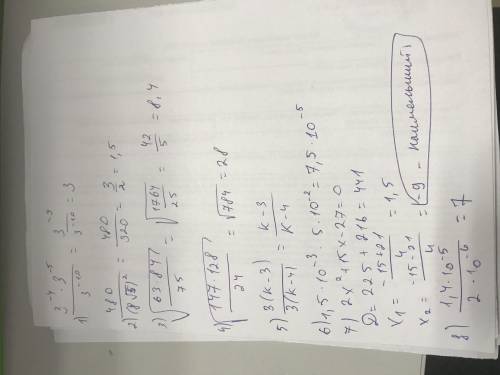 1) 3⁻⁴·3⁻⁵ / 3⁻¹⁰ = 3⁻⁹ / 3⁻¹⁰ = 3
2) 480 / (8√5)² = 480 / 320 = 3 / 2 = 1,5
3) √(63·847 / 75) = √(1764 / 25) = 42 / 5 = 8,4
4) √(147·128 / 24) = √784 = 28
5) 3(k-3) / 3(k-4) = k-3 / k-4
6) 1,5·10⁻³ · 5·10⁻² = 7,5·10⁻⁵
7) 2x²+15x-27=0
D=225+216=441
x₁ = -15+21 / 4 = 1,5
x₂ = -15-21 / 4 = -9 - наименьший
8) 1,4·10⁻⁵ / 2·10⁻⁶ = 7